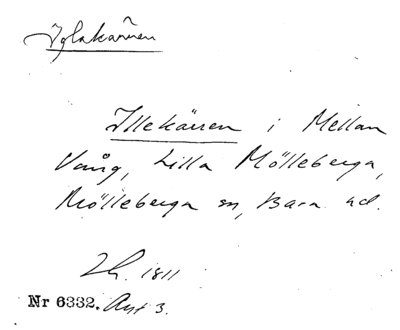 Iglakärren
Illekärren i Mellan
Vång, Lilla Mölleberga,
Mölleberga sn, Bara hd.
Lh. 1811
Nr 6332. Akt 3.